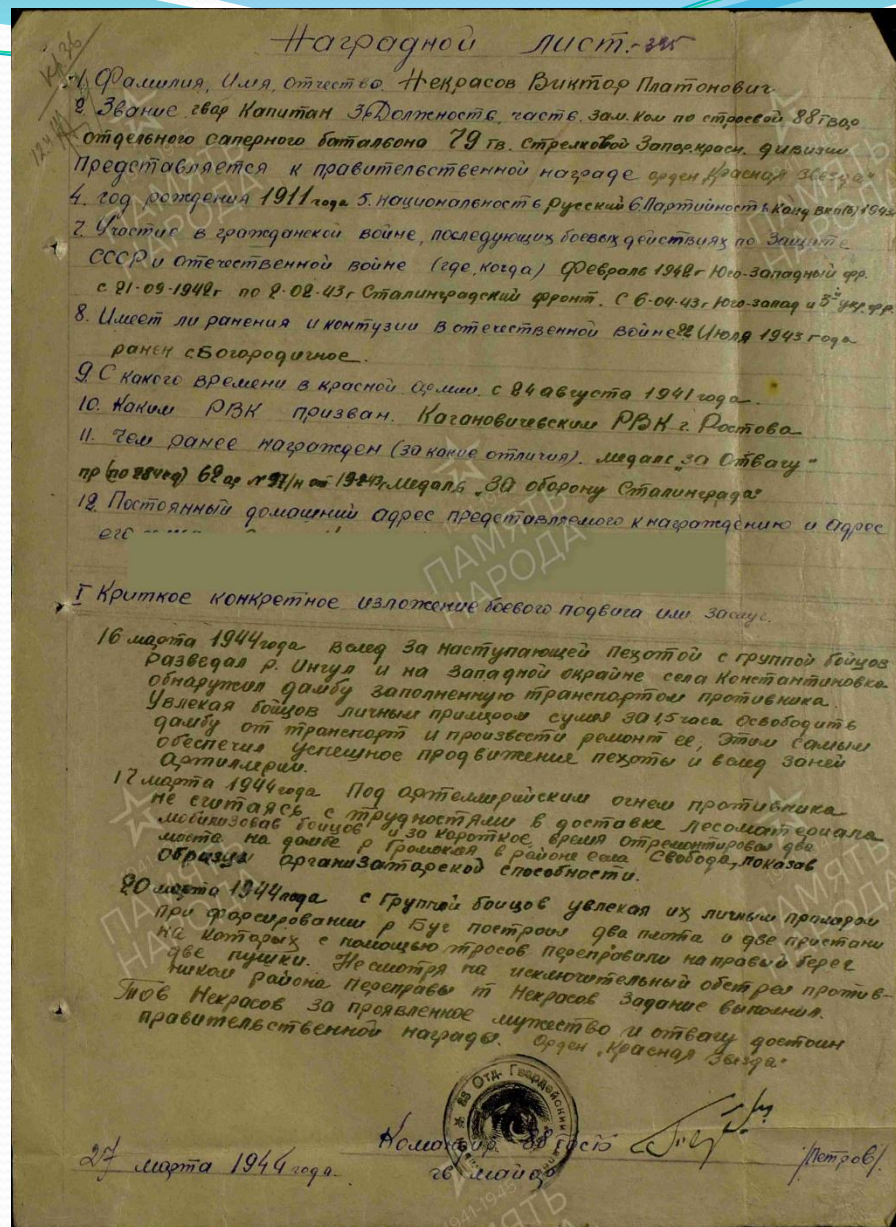 Наградной лист.-
1. Фамилия, Имя, отчество Некрасов Виктор Платонович
2. Звание гвар Капитан 3. Должность, часть. зам. ком по строевой 88 гвар
отдельного саперного батальона 79 гв. Стрелковой Запор. красн. дивизии
Представляется к правительственной награде орден „Красная Звезда"
4. год рождения 1911 года 5. национальность Русский 6. Партийность Канд ВКП(б) 1943
7. Участие в гражданской войне, последующих боевых действиях по Защите
СССР и отечественной войне (где, когда) Февраль 1942 г Юго-Западный фр.
с 21-09-1942г по 2-02-43г Сталинградский фронт. С 6-04-43г Юго-запад и 3й укр. фр.
8. Имеет ли ранения и контузии в отечественной войне 22 Июля 1943 года
ранен с Богородичное.
9. С какого времени в красной армии с 24 августа 1941 года.
10. Каким РВК призван. Кагановичевским РВК г. Ростова
11. Чем ранее награжден (за какие отличия). медаль „за Отвагу"
пр (по 284 сд) 62 ар № 97/н от медаль „За оборону Сталинграда"
12. Постоянный домашний адрес представляемого к награждению и адрес
его
I Криткое конкретное изложение боевого подвига или заслуг.
16 марта 1944 года вслед за наступающей пехотой с группой бойцов
разведал р. Ингул и на Западной окраине села Константиновка
обнаружил дамбу заполненную транспортом противника.
Увлекая бойцов личным примером сумел за 1,5 часа освободить
дамбу от транспорт и произвести ремонт ее, этим самым
обеспечил успешное продвижение пехоты и вслед за ней
Артиллерии.
17 марта 1944 года Под артеллерийским огнем противника
не считаясь с трудностями в доставке лесоматериала
мобилизовав бойцов и за короткое время отремонтировал два
моста на дамбе р Громоклея в районе села Свобода, показав
образцы организатарской способности.
20 марта 1944 года с Группой бойцов увлекая их личным примером
при форсировании р Буг построил два плота и две пристани
на которых с помощью тросов перепровили на правый берег
две пушки. Несмотря на исключительный обстрел против-
ником района переправы т Некрасов Задание выполнил.
Тов Некрасов за проявленное мужество и отвагу достоин
правительственной награды. Орден „Красная Звезда"
88 Отд. Гвардейский
Командир 88
27 марта 1944 года. гв майор /Петров/
ПАМЯТЬ НАРОДА